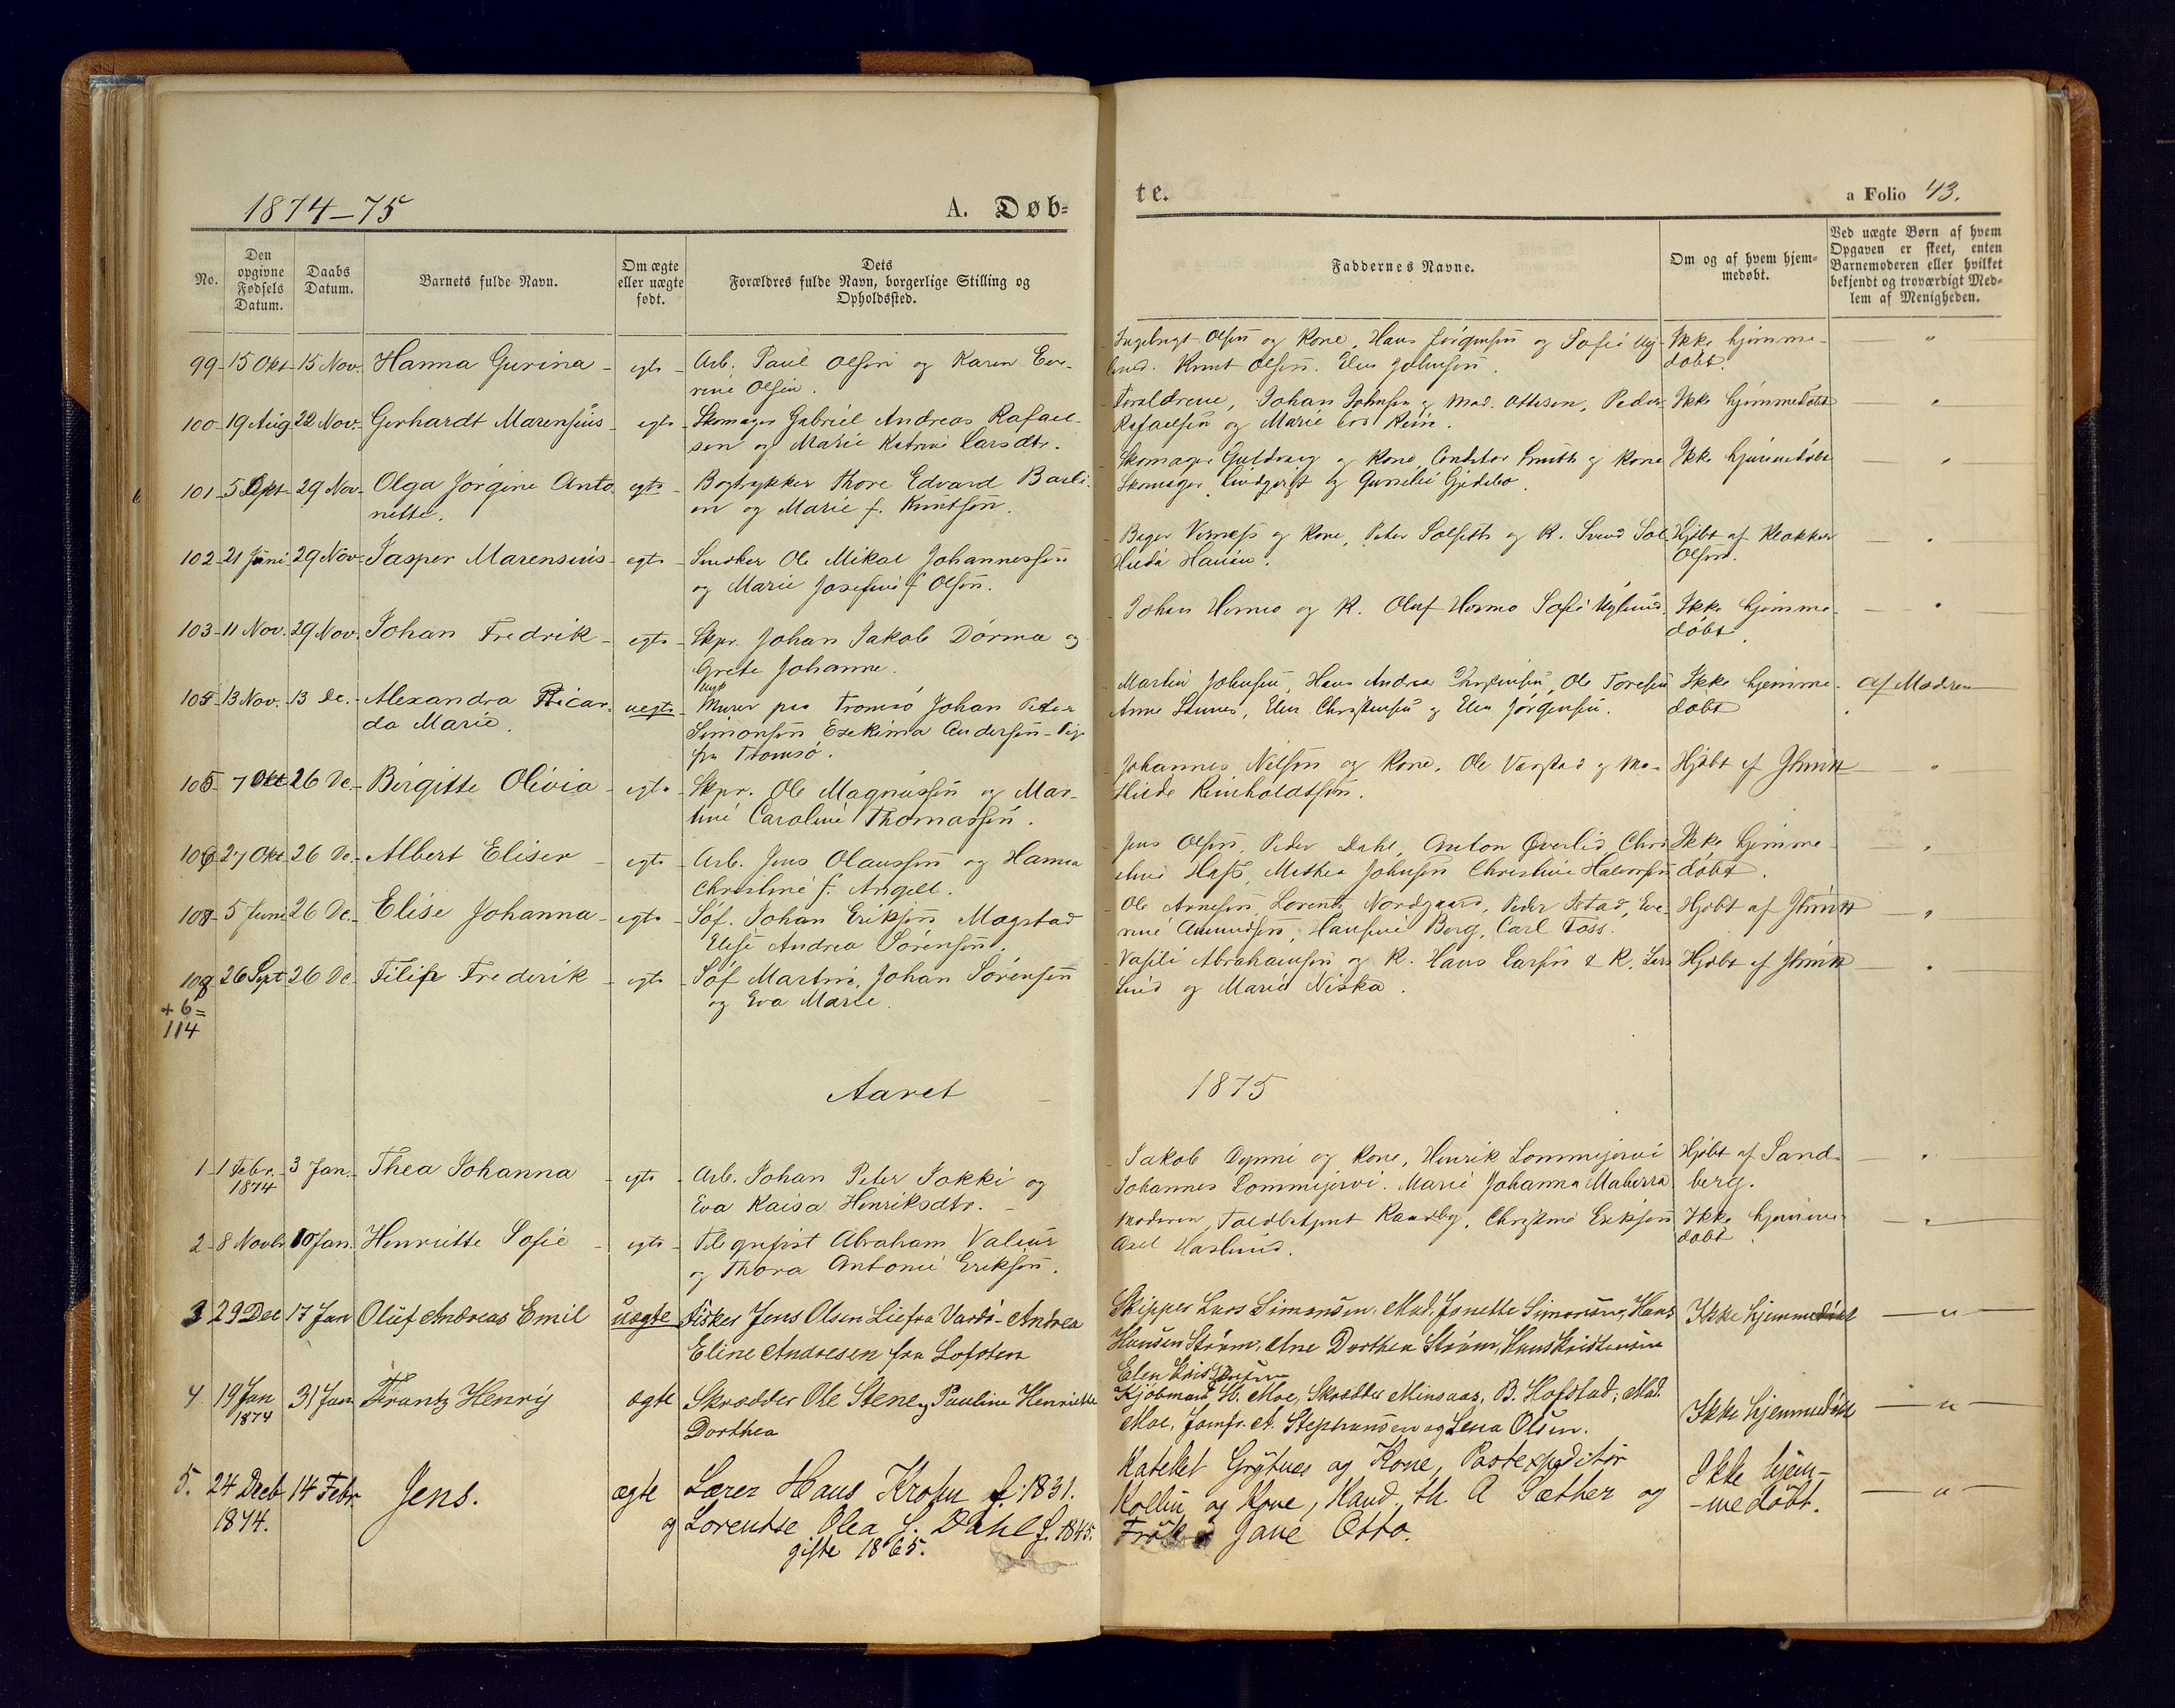 1874-75
A. Døb=
te.
a Folio 43.
No.
Den opgivne Fødsels Datum.
Daabs Datum.
Barnets fulde Navn.
Om ægte eller uægte født.
Dets Forældres fulde Navn, borgerlige Stilling og Opholdssted.
Faddernes Navne.
Om og af hvem hjemmedøbt.
Ved uægte Børn af hvem Opgaven er skeet, enten Barnemoderen eller hvilket bekjendt og troværdigt Medlem af Menigheden.
99 - 15 Okt - 15 Nov. - Hanna Gurina - egte - Arb. Paul Olsen og Karen Eve-
rine Olsen.
Ingebrigt Olsen og Kone, Hans Jörgensen og Sofie Ny-
lund. Knut Olsen. Elen Johnsen.
Ikke hjemme-
döbt. "
100 - 19 Aug - 22 Nov. - Gerhardt Marensius - egte - Skomager Gabriel Andreas Rafael-
sen og Marie Katrine Larsdtr.
Foraldrene, Johan Johnsen og Mad. Ottesen, Peder
Rafaelsen og Marie
Ikke hjemmedöbt - "
101 - 5 Sept - 29 Nov - Olga Jörgine Anto-
nette.
egte - Bogtrykker Thore Edvard Basli-
en og Marie f. Knutsen.
Skomager Guldvog og Kone, Conditor Smith og Kone
Skomager Lindqvist og
Ikke hjemmedöbt - "
102 - 21 Juni - 29 Nov - Jasper Marensius - egte - Snedker Ole Mikal Johannessen
og Marie Josefine f. Olsen.
Bager og Kone, Peter Solseth og K. Svend Sol
Hilda Hansen.
Hjdbt af Klokker
Olsen. "
103 - 11 Nov. - 29 Nov. - Johan Fredrik - egte - Skpr. Johan Jakob Dörma og
Grete Johanne.
Johan Hermo og K. Oluf Hermo Sofie Nylund.
Ikke hjemme-
döbt. "
104 - 13 Nov. - 13 De. - Alexandra Ricar-
da Marie.
uegte - Murer paa Tromsö Johan Peter
Simonsen Esekima Andersen - Pige
fra Tromsö.
Martin Johnsen, Hans Andrea Christensen, Ole Toresen
Anne Sannes, Elen Christensen og Elen Jörgensen.
Ikke hjemme-
döbt
Af Moderen
105 - 7 Okt 26 De. - Birgitte Olivia - egte - Skpr. Ole Magnussen og Mar-
tine Caroline Thomassen.
Johannes Nilsen og Kone. Ole Varstad og Ma-
thilde Reinholdtsen.
Hjdbt af Jhnitt "
106 - 27 Okt. 26 De. - Albert Eliser - egte - Arb. Jens Olaussen og Hanna
Christine f. Angell.
Jens Olsen, Peder Dahl, Anton Øverlid, Chri-
stine Haft, Mathea Johnsen Christine Halvorsen
Ikke hjemme-
döbt. "
107 - 5 Juni 26 De. - Elise Johanna - egte - Söf. Johan Eriksen Mogstad
Elise Andrea Sörensen.
Ole Arnesen, Lorents Nordgaard, Peder Istad, Eve-
rine Amundsen, Hansine Berg, Carl Foss.
Hjdbt af Jhnitt "
108 - 26 Sept - 26 De. - Filip Frederik - egte - Söf Martin Johan Sörensen
og Eva Marie.
Vasili Abrahamsen og K. Hans Larsen & K. Lars
Lund og Marie Niska.
Hjdbt af Jhnitt "
+ 6 =
114
Aaret 1875
1 - 1 Febr. 1874 - 3 Jan. - Thea Johanna - egte - Arb. Johan Peter Jokki og
Eva Kaisa Henriksdtr.
Jakob Dynni og Kone, Henrik Lommijervi
Johannes Lommijervi. Marie Johanna Maherra
Hjdbt af Sand-
berg. "
2 - 8 Novbr 10 Jan. Henriette Sofie - egte - Telegrafist Abraham Valeur
og Thora Antonie Eriksen.
Moderen, Toldbetjent Raadby, Christine Eriksen
Axel Haslund.
Ikke hjemme-
döbt "
3 29 Dec 17 Jan Oluf Andreas Emil uægte Fisker Jens Olsen Lie fra Vardö - Andrea
Eline Andresen fra Lofoten
Skipper Lars Simonsen, Mad. Jonette Simonsen, Hans
Hansen Ström, Ane Dorthea Ström, Hans Kristensen
Elen Kristensen
Ikke hjemmedöbt - " -
4 19 Jan 1874 31 Jan Frantz Henrij ægte Skrædder Ole Stene og Pauline Henriette
Dorthea
Kjöbmand H. Moe, Skrædder Minsaas, B. Hofstad, Mad.
Moe, Jomfr. A. Stephansen og Lena Olsen.
Ikke hjemmedöbt - " -
5. 24 Decb 1874. 14 Febr. Jens. ægte Lærer Hans Krohn f. 1831.
og Lorentse Olea f. Dahl f. 1845.
gifte 1865.
Kateket Grytnes og Kone, Postexpeditör
Kollin og Kone, Hand. th. A Sæther og
Frök Jane Otto.
Ikke hjem-
-medöbt. - " -